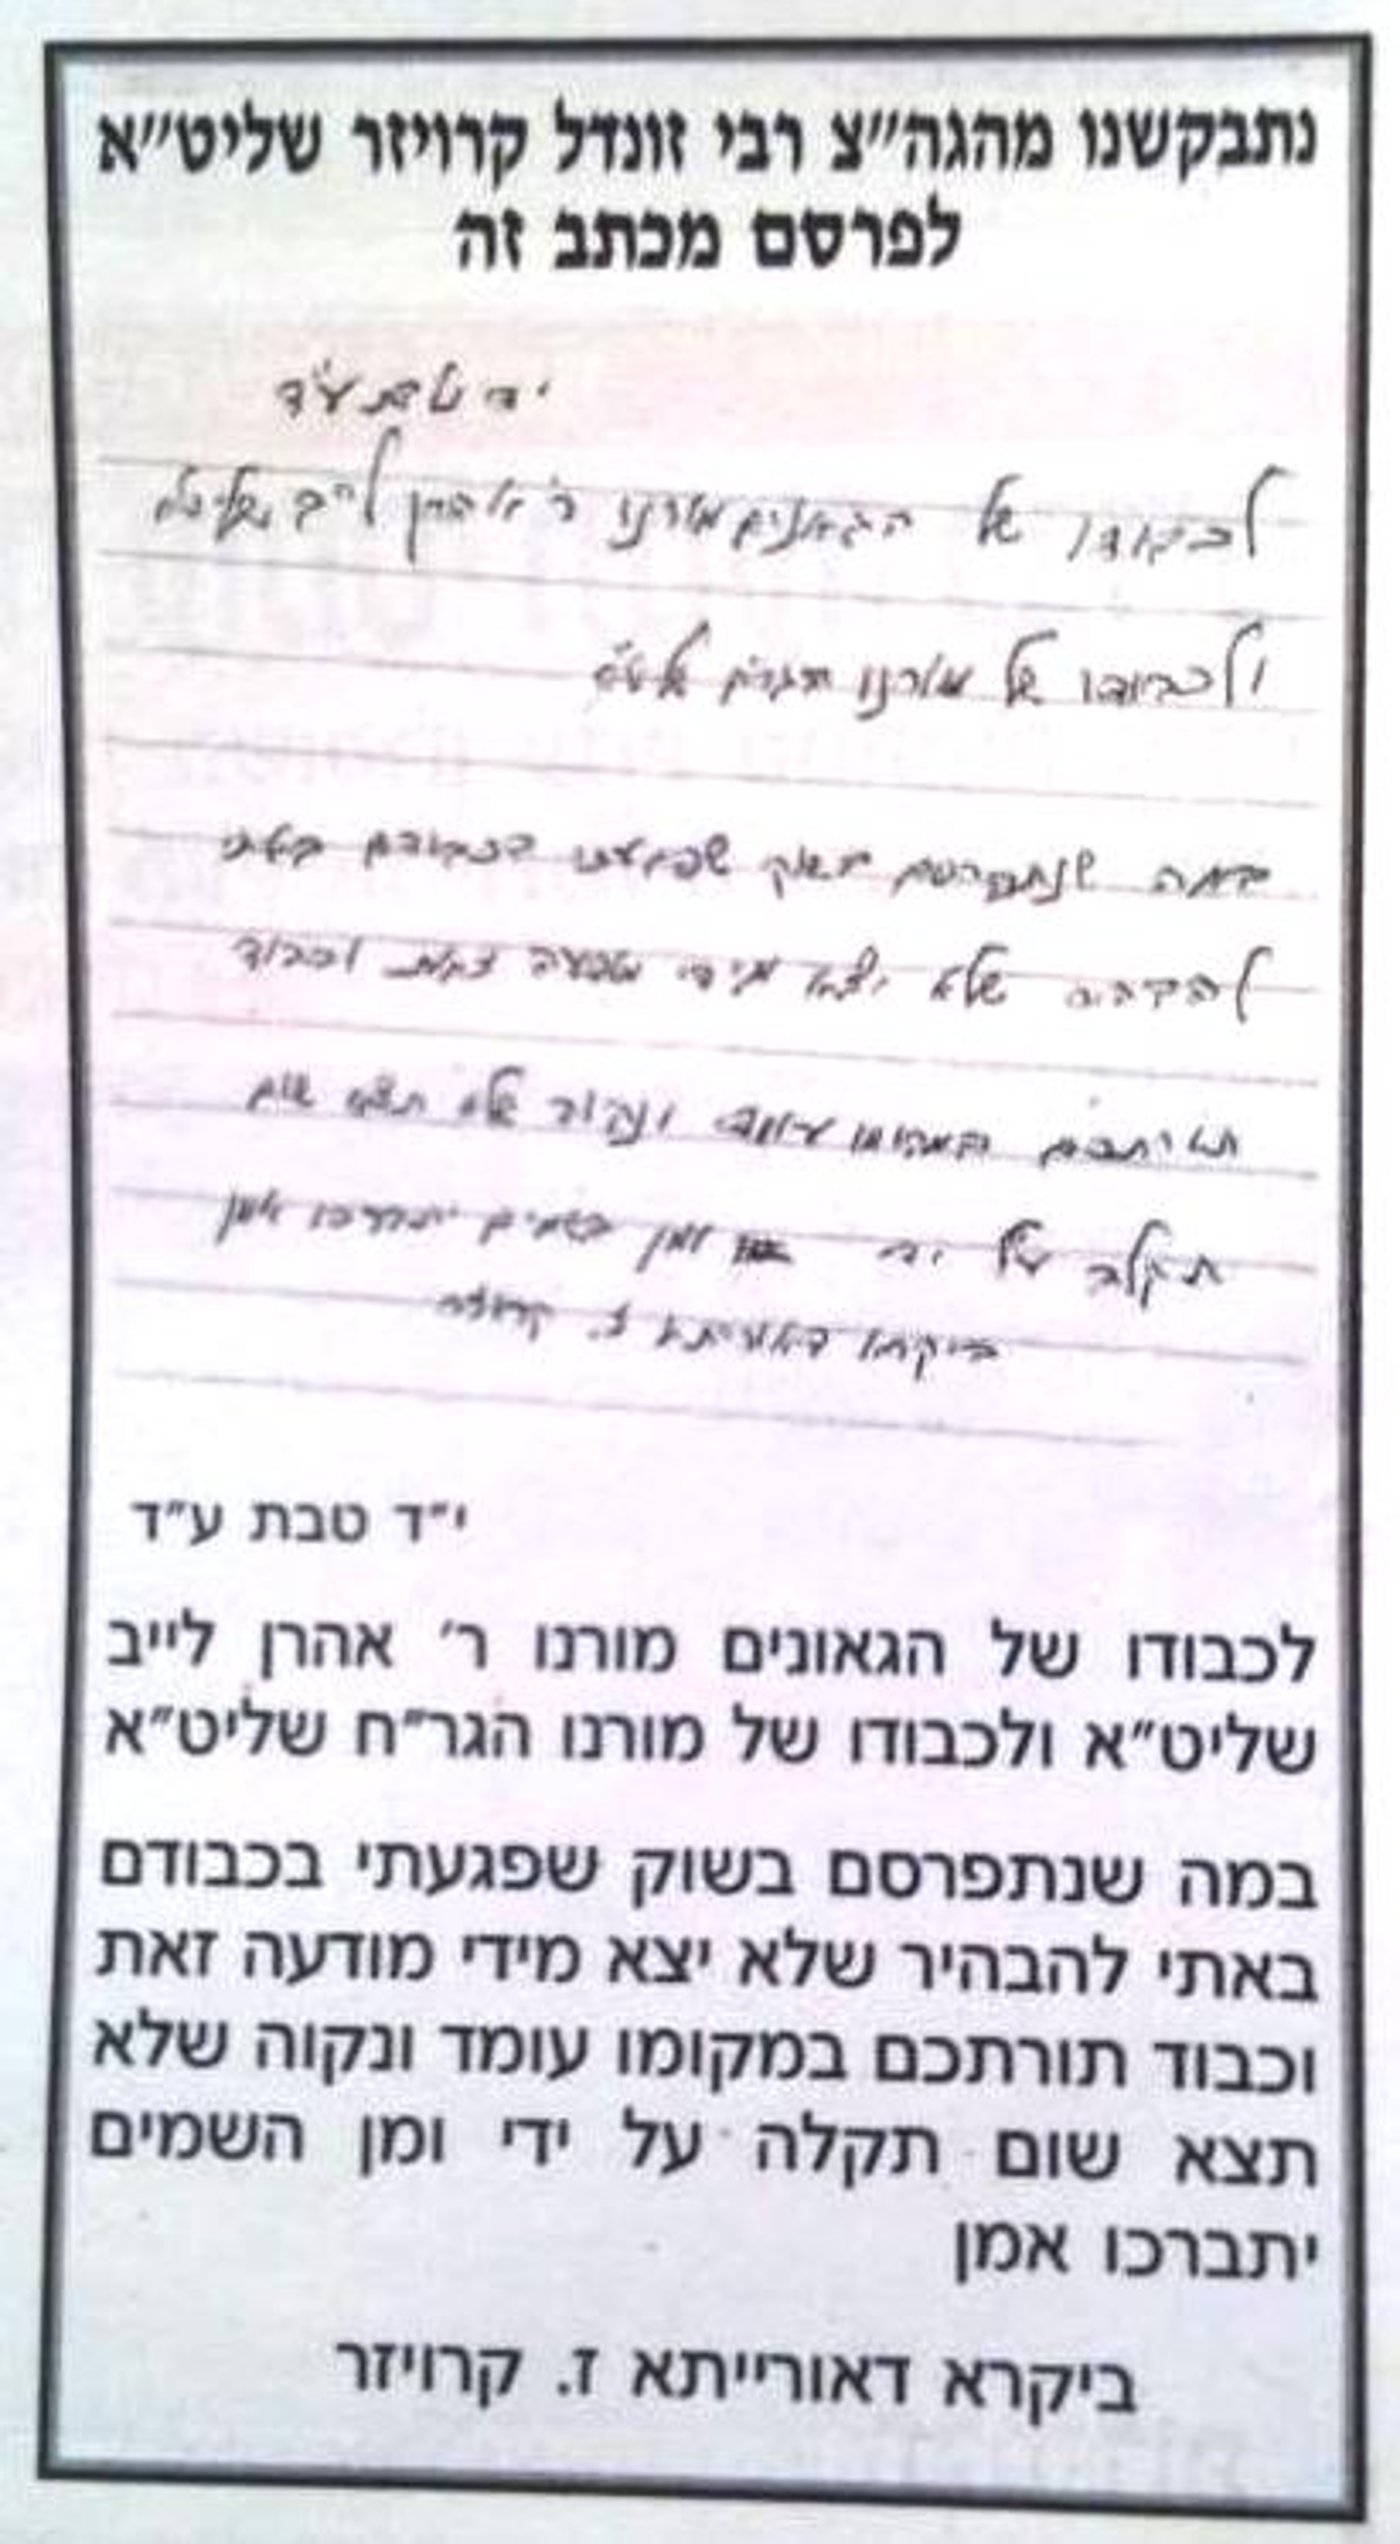 נתבקשנו מהגה״צ רבי זונדל קרויזר שליט״א
לפרסם מכתב זה
יד טבת ע״ד
לכבודו של הגאונים מורנו ר' אהרן לייב שליטא
ולכבודו של מורנו הגרח שליט״א
במה שנתפרסם בשוק שפגעתי בכבודם באתי
להבהיר שלא יצא מידי מודעה זאת וכבוד
תורתכם במקומו עומד ונקוה שלא תצא שום
תקלה על ידי ומן השמים יתברכו אמן
ביקרא דאורייתא ז. קרויזר
י״ד טבת ע״ד
לכבודו של הגאונים מורנו ר' אהרן לייב
שליט״א ולכבודו של מורנו הגר״ח שליט״א
במה שנתפרסם בשוק שפגעתי בכבודם
באתי להבהיר שלא יצא מידי מודעה זאת
וכבוד תורתכם במקומו עומד ונקוה שלא
תצא שום תקלה על ידי ומן השמים
יתברכו אמן
ביקרא דאורייתא ז. קרויזר